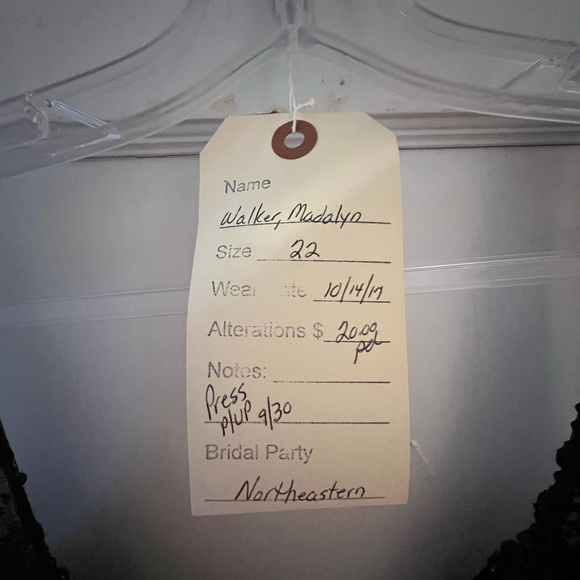 Name
Walker, Madalyn
Size 22
Wear Date 10/14/17
Alterations $ 20.00
pd
Notes:
Press
P/UP 9/30
Bridal Party
Northeastern